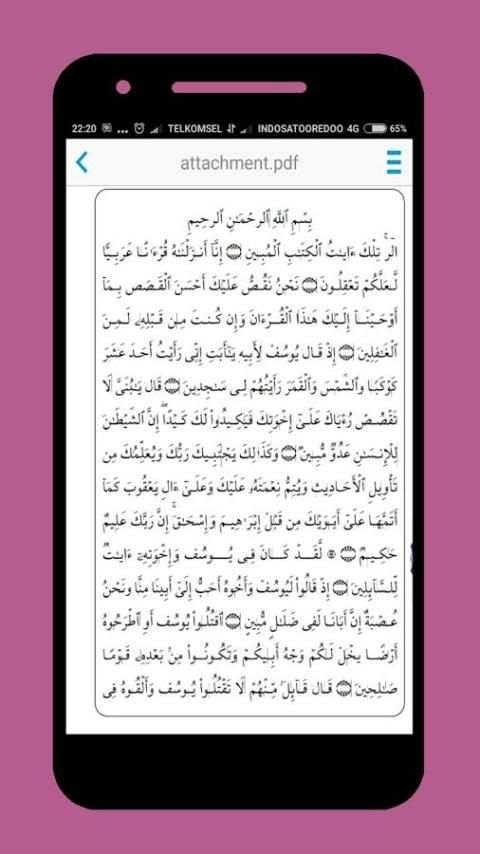 22:20 ... TELKOMSEL INDOSATOOREDOO 4G 65%
attachment.pdf
بِسْمِ ٱللَّهِ ٱلرَّحْمَـٰنِ ٱلرَّحِيمِ
الٓر ۚ تِلْكَ ءَايَـٰتُ ٱلْكِتَـٰبِ ٱلْمُبِينِ ۝ إِنَّآ أَنزَلْنَـٰهُ قُرْءَٰنًا عَرَبِيًّا
لَّعَلَّكُمْ تَعْقِلُونَ ۝ نَحْنُ نَقُصُّ عَلَيْكَ أَحْسَنَ ٱلْقَصَصِ بِمَآ
أَوْحَيْنَآ إِلَيْكَ هَـٰذَا ٱلْقُرْءَانَ وَإِن كُنتَ مِن قَبْلِهِۦ لَمِنَ
ٱلْغَـٰفِلِينَ ۝ إِذْ قَالَ يُوسُفُ لِأَبِيهِ يَـٰٓأَبَتِ إِنِّى رَأَيْتُ أَحَدَ عَشَرَ
كَوْكَبًا وَٱلشَّمْسَ وَٱلْقَمَرَ رَأَيْتُهُمْ لِى سَـٰجِدِينَ ۝ قَالَ يَـٰبُنَىَّ لَا
تَقْصُصْ رُءْيَاكَ عَلَىٰٓ إِخْوَتِكَ فَيَكِيدُوا۟ لَكَ كَيْدًا ۖ إِنَّ ٱلشَّيْطَـٰنَ
لِلْإِنسَـٰنِ عَدُوٌّ مُّبِينٌ ۝ وَكَذَٰلِكَ يَجْتَبِيكَ رَبُّكَ وَيُعَلِّمُكَ مِن
تَأْوِيلِ ٱلْأَحَادِيثِ وَيُتِمُّ نِعْمَتَهُۥ عَلَيْكَ وَعَلَىٰٓ ءَالِ يَعْقُوبَ كَمَآ
أَتَمَّهَا عَلَىٰٓ أَبَوَيْكَ مِن قَبْلُ إِبْرَٰهِيمَ وَإِسْحَـٰقَ ۚ إِنَّ رَبَّكَ عَلِيمٌ
حَكِيمٌ ۝ ۞ لَّقَدْ كَانَ فِى يُوسُفَ وَإِخْوَتِهِۦٓ ءَايَـٰتٌ
لِّلسَّآئِلِينَ ۝ إِذْ قَالُوا۟ لَيُوسُفُ وَأَخُوهُ أَحَبُّ إِلَىٰٓ أَبِينَا مِنَّا وَنَحْنُ
عُصْبَةٌ إِنَّ أَبَانَا لَفِى ضَلَـٰلٍ مُّبِينٍ ۝ ٱقْتُلُوا۟ يُوسُفَ أَوِ ٱطْرَحُوهُ
أَرْضًا يَخْلُ لَكُمْ وَجْهُ أَبِيكُمْ وَتَكُونُوا۟ مِنۢ بَعْدِهِۦ قَوْمًا
صَـٰلِحِينَ ۝ قَالَ قَآئِلٌ مِّنْهُمْ لَا تَقْتُلُوا۟ يُوسُفَ وَأَلْقُوهُ فِى